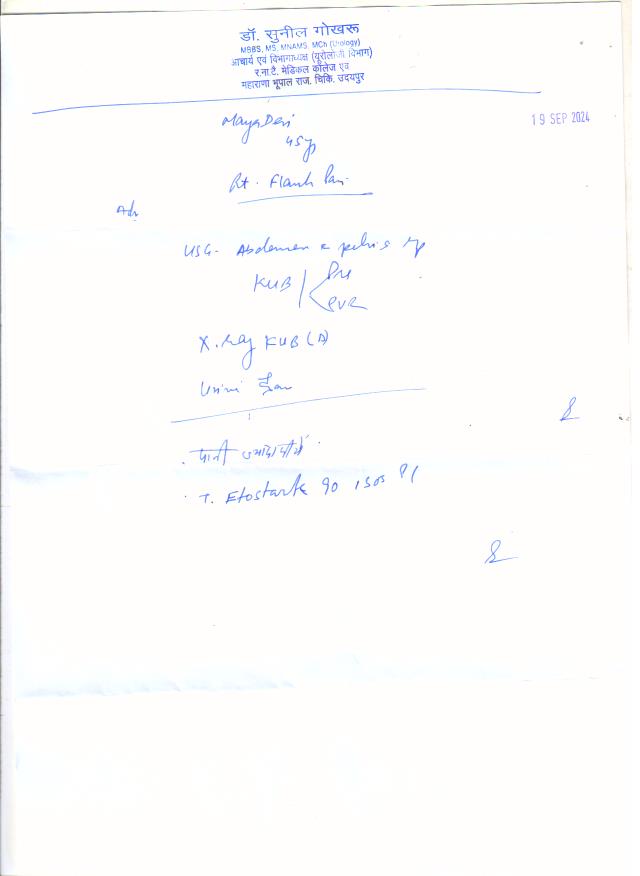 डॉ. सुनील गोखरू
MBBS, MS, MNAMS, MCh (Urology)
आचार्य एवं विभागाध्यक्ष (यूरोलॉजी विभाग)
र.ना.टै. मेडिकल कॉलेज एवं
महाराणा भूपाल राज. चिकि. उदयपुर
19 SEP 2024
Maya Devi
45y
Rt. Flank Pain
Adv
USG- Abdomen & pelvis
KUB Pre
PVR
X.ray KUB (A)
Urine
पानी ज्यादा पीयें
T. Etostark 90 1 SOS